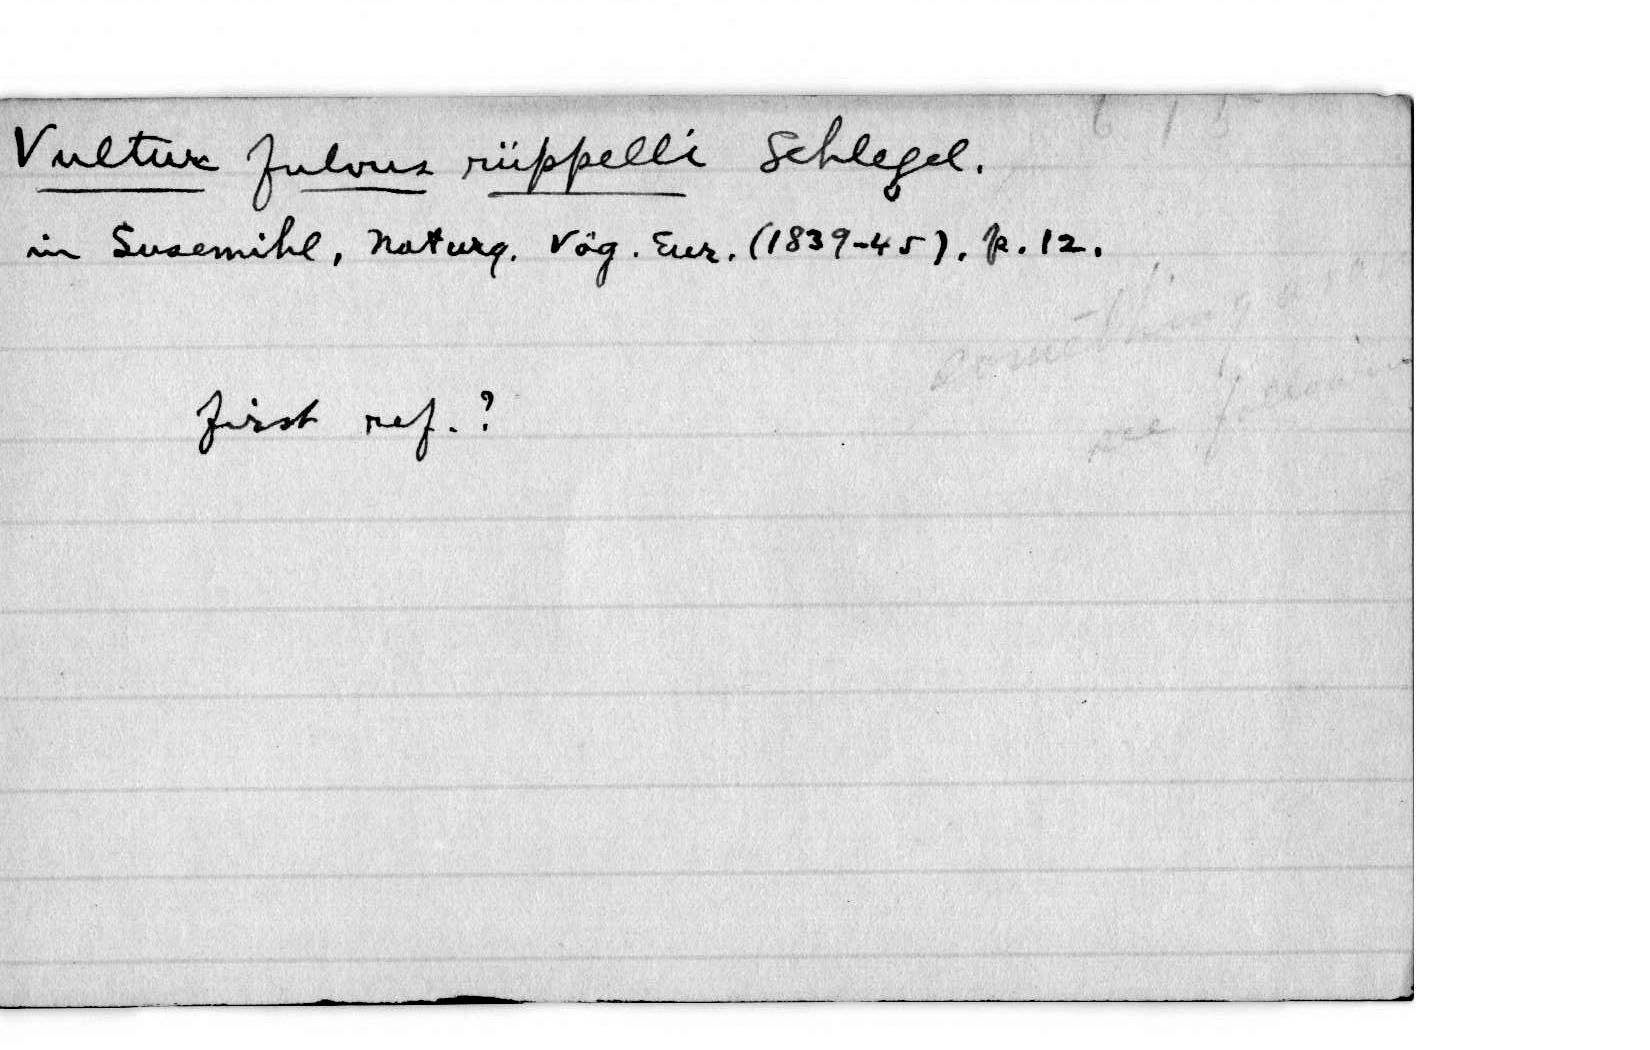 6 1 5
Vultur fulvus rüppelli Schlegel.
in Susemihl, Naturg. Vög. Eur. (1839-45), p. 12.
something
first ref.?
see